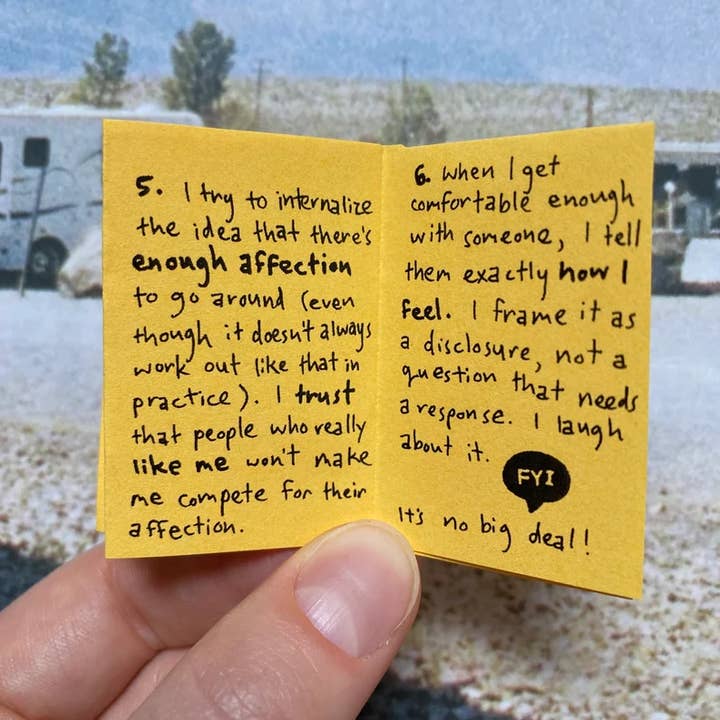 5. I try to internalize
the idea that there's
enough affection
to go around (even
though it doesn't always
work out like that in
practice). I trust
that people who really
like me won't make
me compete for their
affection.
6. when I get
comfortable enough
with someone, I tell
them exactly how I
feel. I frame it as
a disclosure, not a
question that needs
a response. I laugh
about it.
FYI
It's no big deal!